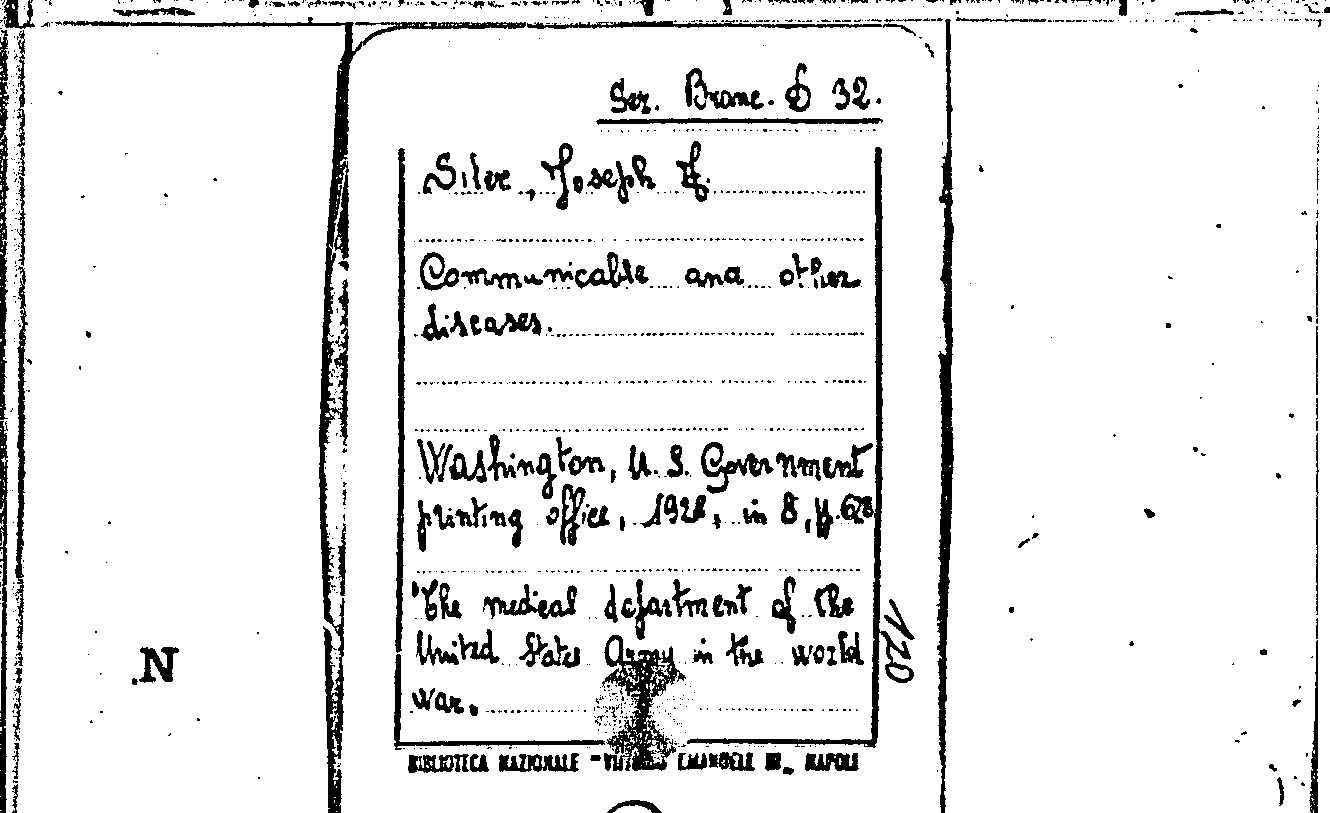 Sez. Branc. D 32.
Siler, Joseph F.
Communicable and other
diseases.
Washington, U. S. Government
printing office, 1928, in 8, p. 628
The medical department of the
United States Army in the world
war.
120
N
BIBLIOTECA NAZIONALE "VITTORIO EMANUELE III" NAPOLI